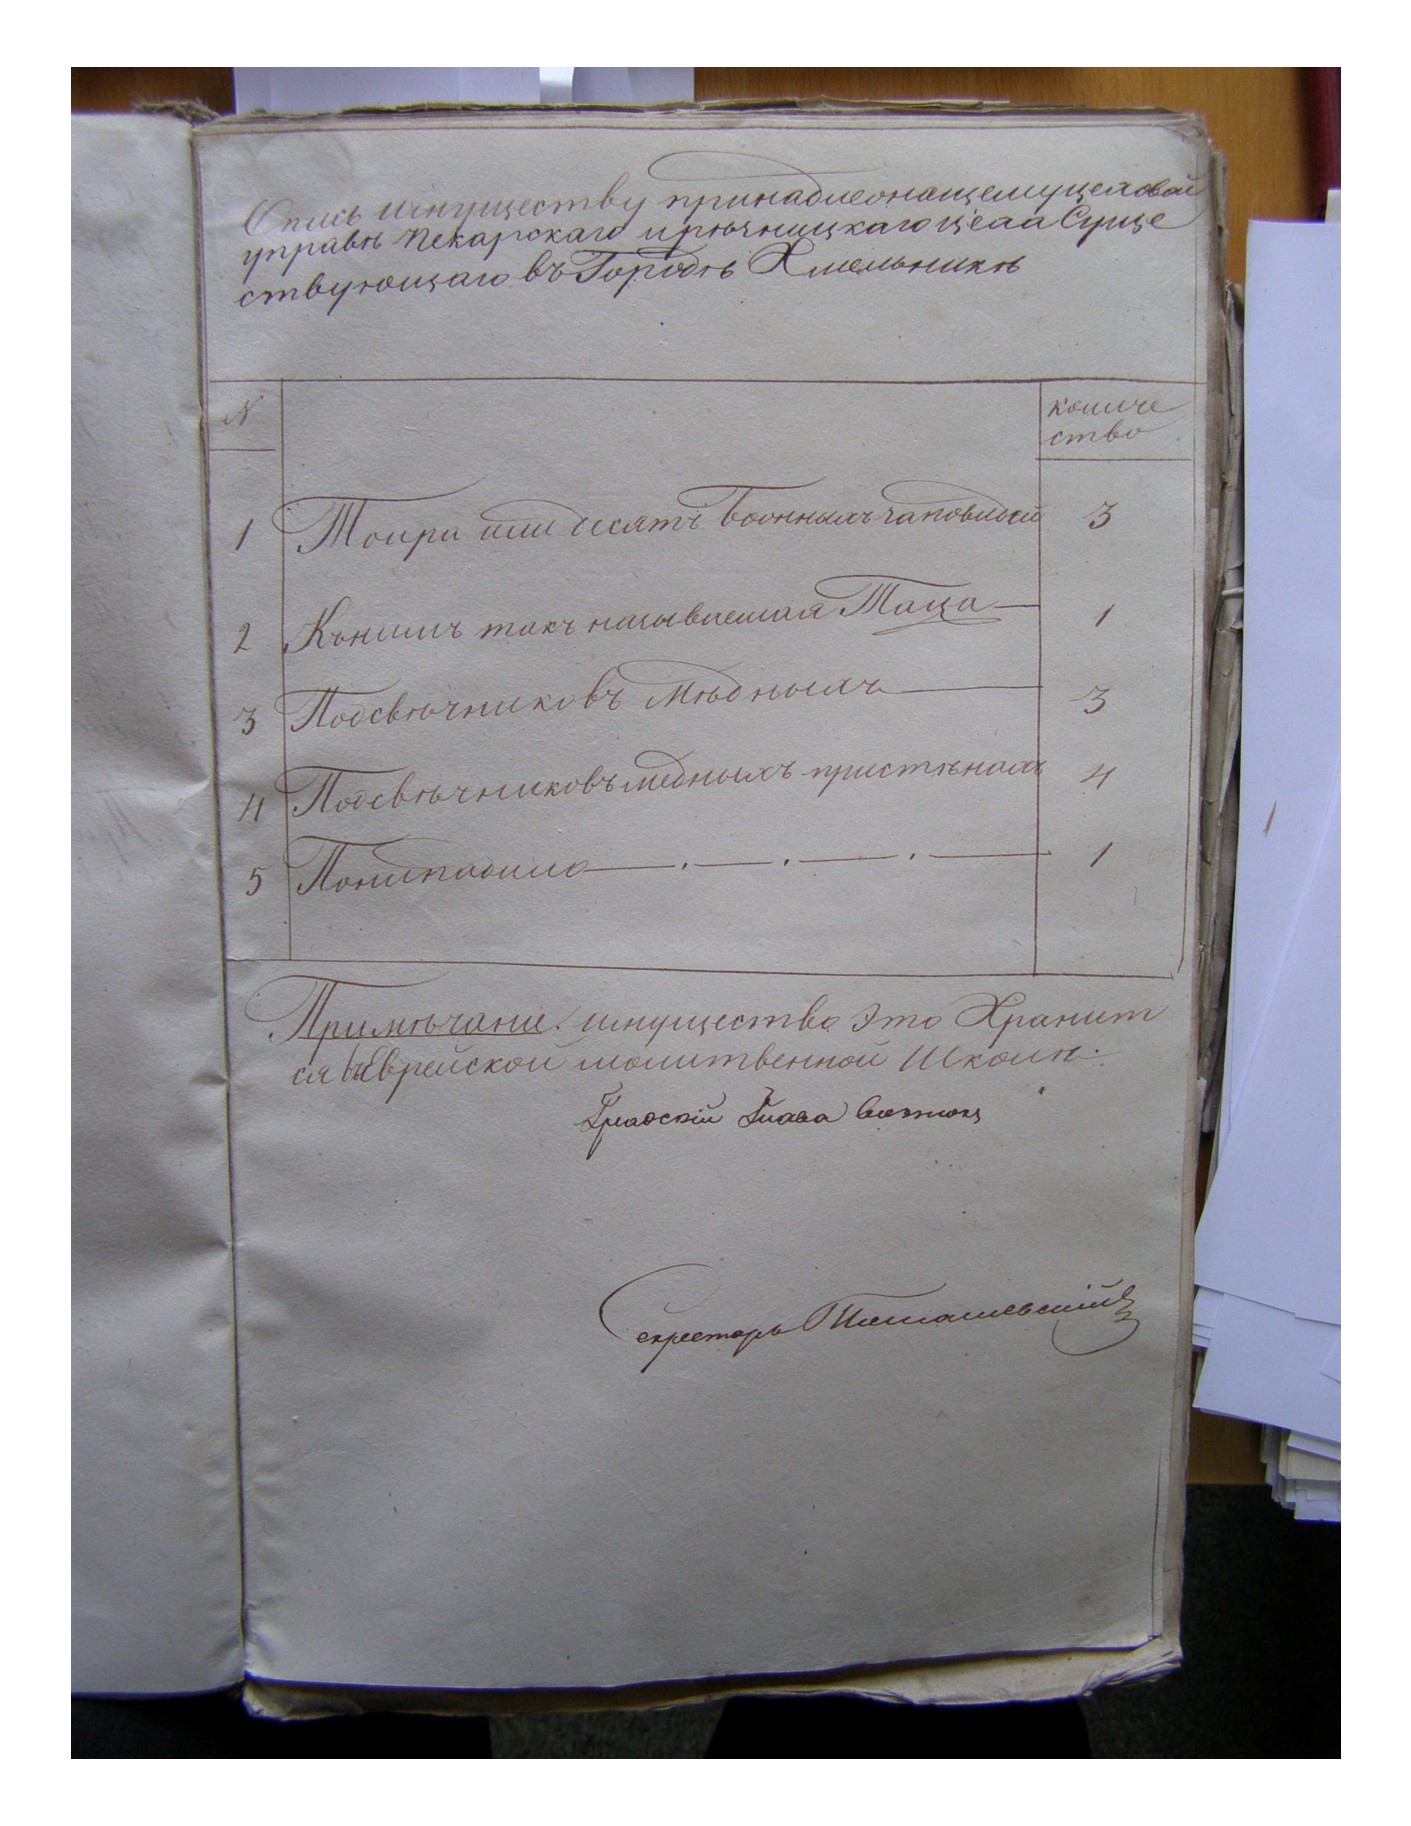 Опись имуществу принадлежащему цеховой
управѣ Пекарскаго и рѣзницкаго цеаа Суще
ствующаго въ Городѣ Хмельникѣ
N
количе
ство
1 Тоири или десять боонныхъ заповидей 3
2 Къ нимъ такъ называемая Таца 1
3 Подсвѣчниковъ мѣдныхъ 3
4 Подсвѣчниковъ медныхъ пристѣнахъ 4
5 1
Примѣчание. имущество Это Хранит
ся въ Еврейской молитвенной Школѣ.
Градскій Глава
Секретарь